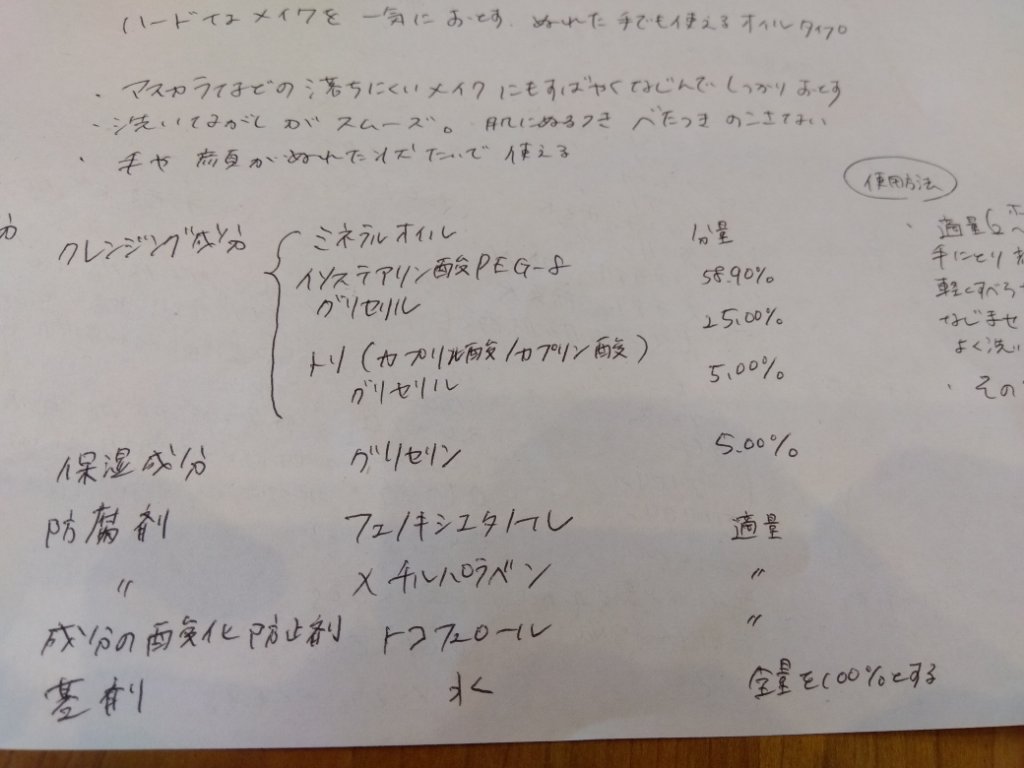 ハードなメイクを一気におとす.ぬれた手でも使えるオイルタイプ。
・マスカラなどの落ちにくいメイクにもすばやくなじんでしっかりおとす
・洗いながしがスムーズ。肌にぬるつき べたつき のこさない
・手や顔がぬれた状たいで使える
使用方法
分
クレンジング成分 ミネラルオイル 分量
イソステアリン酸PEG-8 58.90%
グリセリル 25.00%
トリ(カプリル酸/カプリン酸)
グリセリル 5.00%
保湿成分 グリセリン 5.00%
防腐剤 フェノキシエタノール 適量
〃 メチルパラベン 〃
成分の酸化防止剤 トコフェロール 〃
基剤 水 全量を100%とする
・適量(2
手にとり
軽くすべら
なじませ
よく洗い
・その